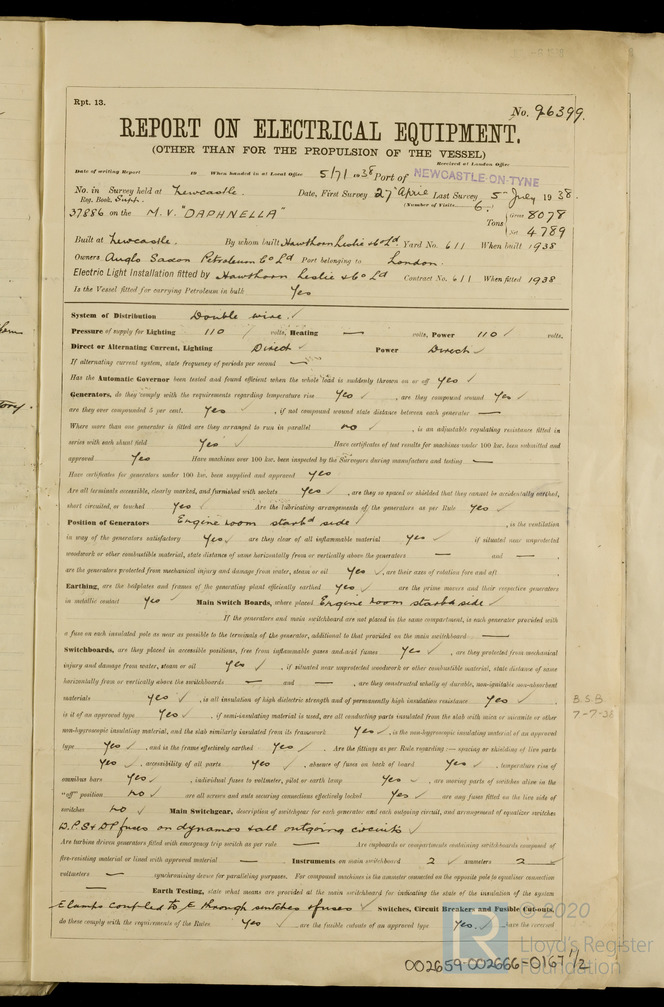 Rpt. 13.
No. 96399.
REPORT ON ELECTRICAL EQUIPMENT.
(OTHER THAN FOR THE PROPULSION OF THE VESSEL)
Received at London Office
Date of writing Report 19 When handed in at Local Office 5/7/1938 Port of NEWCASTLE-ON-TYNE
No. in Survey held at Newcastle. Date, First Survey 27 April Last Survey 5 July 1938.
Reg. Book. Supp. (Number of Visits 6.)
37886 on the M.V. "DAPHNELLA" Tons { Gross 8078
Net 4789
Built at Newcastle. By whom built Hawthorn Leslie & Co Ld. Yard No. 611 When built 1938
Owners Anglo Saxon Petroleum Co Ld Port belonging to London.
Electric Light Installation fitted by Hawthorn Leslie & Co Ld Contract No. 611 When fitted 1938
Is the Vessel fitted for carrying Petroleum in bulk Yes
System of Distribution Double wire. ✓
Pressure of supply for Lighting 110 ✓ volts, Heating — volts, Power 110 ✓ volts.
Direct or Alternating Current, Lighting Direct ✓ Power Direct ✓
If alternating current system, state frequency of periods per second —
Has the Automatic Governor been tested and found efficient when the whole load is suddenly thrown on or off Yes ✓
Generators, do they comply with the requirements regarding temperature rise Yes ✓, are they compound wound Yes ✓
are they over compounded 5 per cent. Yes ✓, if not compound wound state distance between each generator —
Where more than one generator is fitted are they arranged to run in parallel no ✓, is an adjustable regulating resistance fitted in
series with each shunt field Yes ✓ Have certificates of test results for machines under 100 kw. been submitted and
approved Yes Have machines over 100 kw. been inspected by the Surveyors during manufacture and testing —
Have certificates for generators under 100 kw. been supplied and approved Yes
Are all terminals accessible, clearly marked, and furnished with sockets Yes ✓, are they so spaced or shielded that they cannot be accidentally earthed,
short circuited, or touched Yes ✓ Are the lubricating arrangements of the generators as per Rule Yes ✓
Position of Generators Engine room starbd side ✓, is the ventilation
in way of the generators satisfactory Yes ✓ are they clear of all inflammable material Yes ✓ if situated near unprotected
woodwork or other combustible material, state distance of same horizontally from or vertically above the generators — and —,
are the generators protected from mechanical injury and damage from water, steam or oil Yes ✓, are their axes of rotation fore and aft
Earthing, are the bedplates and frames of the generating plant efficiently earthed Yes ✓ are the prime movers and their respective generators
in metallic contact Yes ✓ Main Switch Boards, where placed Engine room starbd side ✓
If the generators and main switchboard are not placed in the same compartment, is each generator provided with
a fuse on each insulated pole as near as possible to the terminals of the generator, additional to that provided on the main switchboard —
Switchboards, are they placed in accessible positions, free from inflammable gases and acid fumes Yes ✓, are they protected from mechanical
injury and damage from water, steam or oil Yes ✓, if situated near unprotected woodwork or other combustible material, state distance of same
horizontally from or vertically above the switchboards — and —, are they constructed wholly of durable, non-ignitable non-absorbent
materials Yes ✓, is all insulation of high dielectric strength and of permanently high insulation resistance Yes ✓,
B.S.B
7-7-38
is it of an approved type Yes ✓, if semi-insulating material is used, are all conducting parts insulated from the slab with mica or micanite or other
non-hygroscopic insulating material, and the slab similarly insulated from its framework Yes ✓, is the non-hygroscopic insulating material of an approved
type Yes ✓, and is the frame effectively earthed Yes ✓ Are the fittings as per Rule regarding :— spacing or shielding of live parts
Yes ✓, accessibility of all parts Yes ✓, absence of fuses on back of board Yes ✓, temperature rise of
omnibus bars Yes ✓, individual fuses to voltmeter, pilot or earth lamp Yes ✓, are moving parts of switches alive in the
"off" position no ✓ are all screws and nuts securing connections effectively locked Yes ✓ are any fuses fitted on the live side of
switches no ✓ Main Switchgear, description of switchgear for each generator and each outgoing circuit, and arrangement of equalizer switches
D.P.S & DP fuses on dynamos & all outgoing circuits ✓
Are turbine driven generators fitted with emergency trip switch as per rule — Are cupboards or compartments containing switchboards composed of
fire-resisting material or lined with approved material — Instruments on main switchboard 2 ✓ ammeters 2 ✓
voltmeters — synchronising device for paralleling purposes. For compound machines is the ammeter connected on the opposite pole to equaliser connection
— Earth Testing, state what means are provided at the main switchboard for indicating the state of the insulation of the system
E lamps coupled to E through switches & fuses ✓ Switches, Circuit Breakers and Fusible Cut-outs,
do these comply with the requirements of the Rules Yes ✓ are the fusible cutouts of an approved type Yes. ✓ have the reversed
© 2020
Lloyd's Register
Foundation
002659-002666-0167 1/2